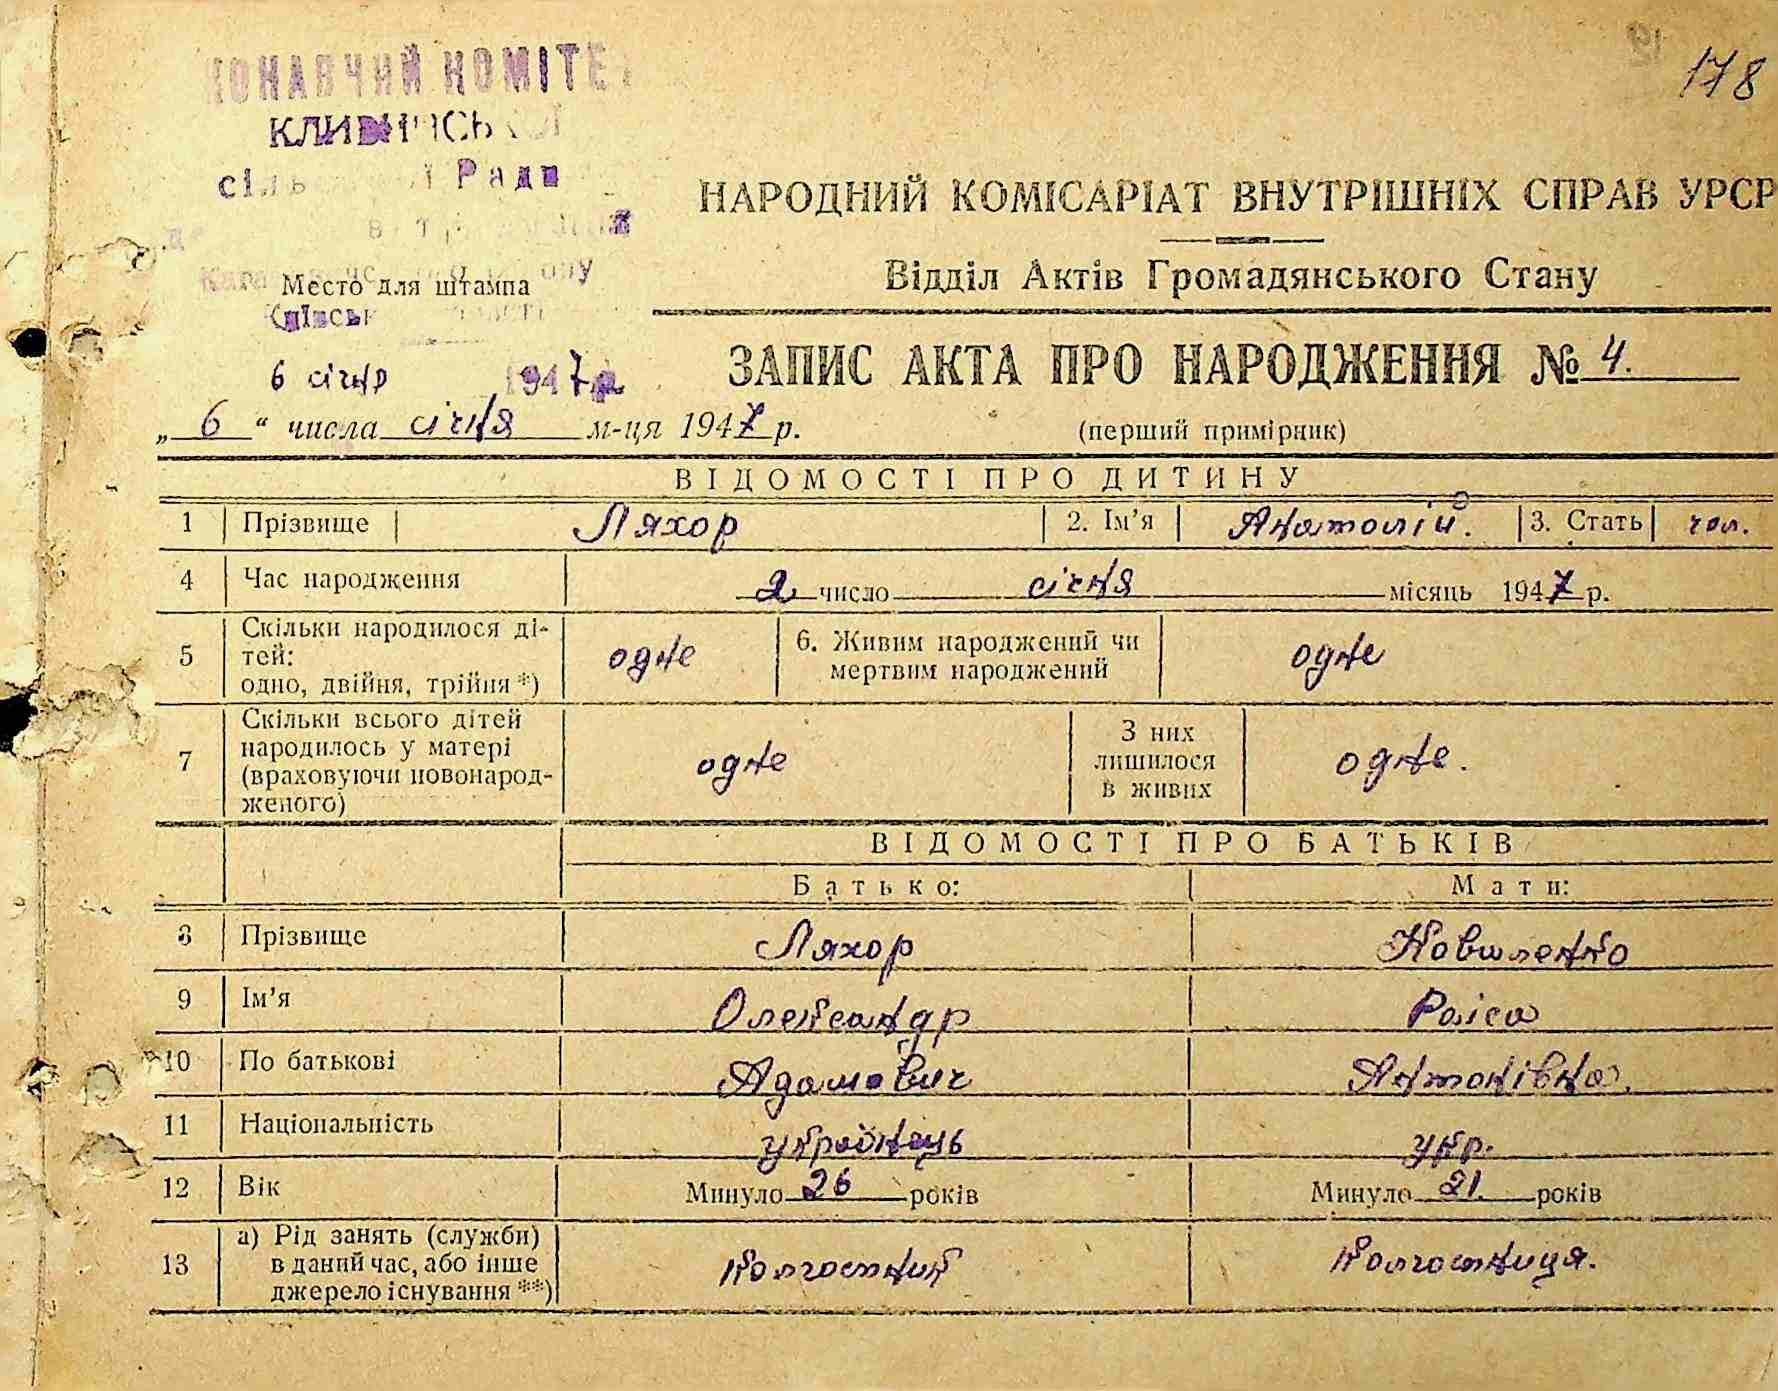 178
КОНАВЧИЙ КОМІТЕ
КЛИВИНСЬКОЇ
Ради
НАРОДНИЙ КОМІСАРІАТ ВНУТРІШНІХ СПРАВ УРСР
Відділ Актів Громадянського Стану
Место для штампа
ЗАПИС АКТА ПРО НАРОДЖЕННЯ № 4.
6 січня 1947 р
„ 6 “ числа січня м-ця 1947 р.
(перший примірник)
ВІДОМОСТІ ПРО ДИТИНУ
1 Прізвище Ляхор 2. Ім’я Анатолій. 3. Стать чол.
4 Час народження 2 число січня місяць 1947 р.
5 Скільки народилося ді-
тей:
одно, двійня, трійня *) одне 6. Живим народжений чи
мертвим народжений одне
7 Скільки всього дітей
народилось у матері
(враховуючи новонарод-
женого) одне З них
лишилося
в живих одне.
ВІДОМОСТІ ПРО БАТЬКІВ
Батько: Мати:
8 Прізвище Ляхор Коваленко
9 Ім’я Олександр Раіса
10 По батькові Адамович Антонівна.
11 Національність українець укр.
12 Вік Минуло 26 років Минуло 21. років
13 а) Рід занять (служби)
в даний час, або інше
джерело існування **) Колгоспник Колгоспниця.